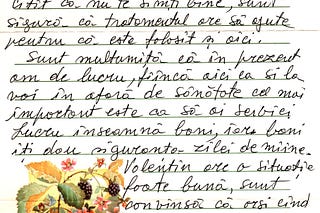 citit că nu te simți bine, sunt
sigură că tratamentul are să ajute
pentru că este folosit și aici.
Sunt multumită că în prezent
am de lucru, fiincă aici ca si la
voi în afară de sănătate cel mai
important este ca să ai serbici
lucru înseamnă bani, iar bani
iți dau siguranta zilei de mâine.
Valentin are o situație
foate bună, sunt
convinsă că ori cînd